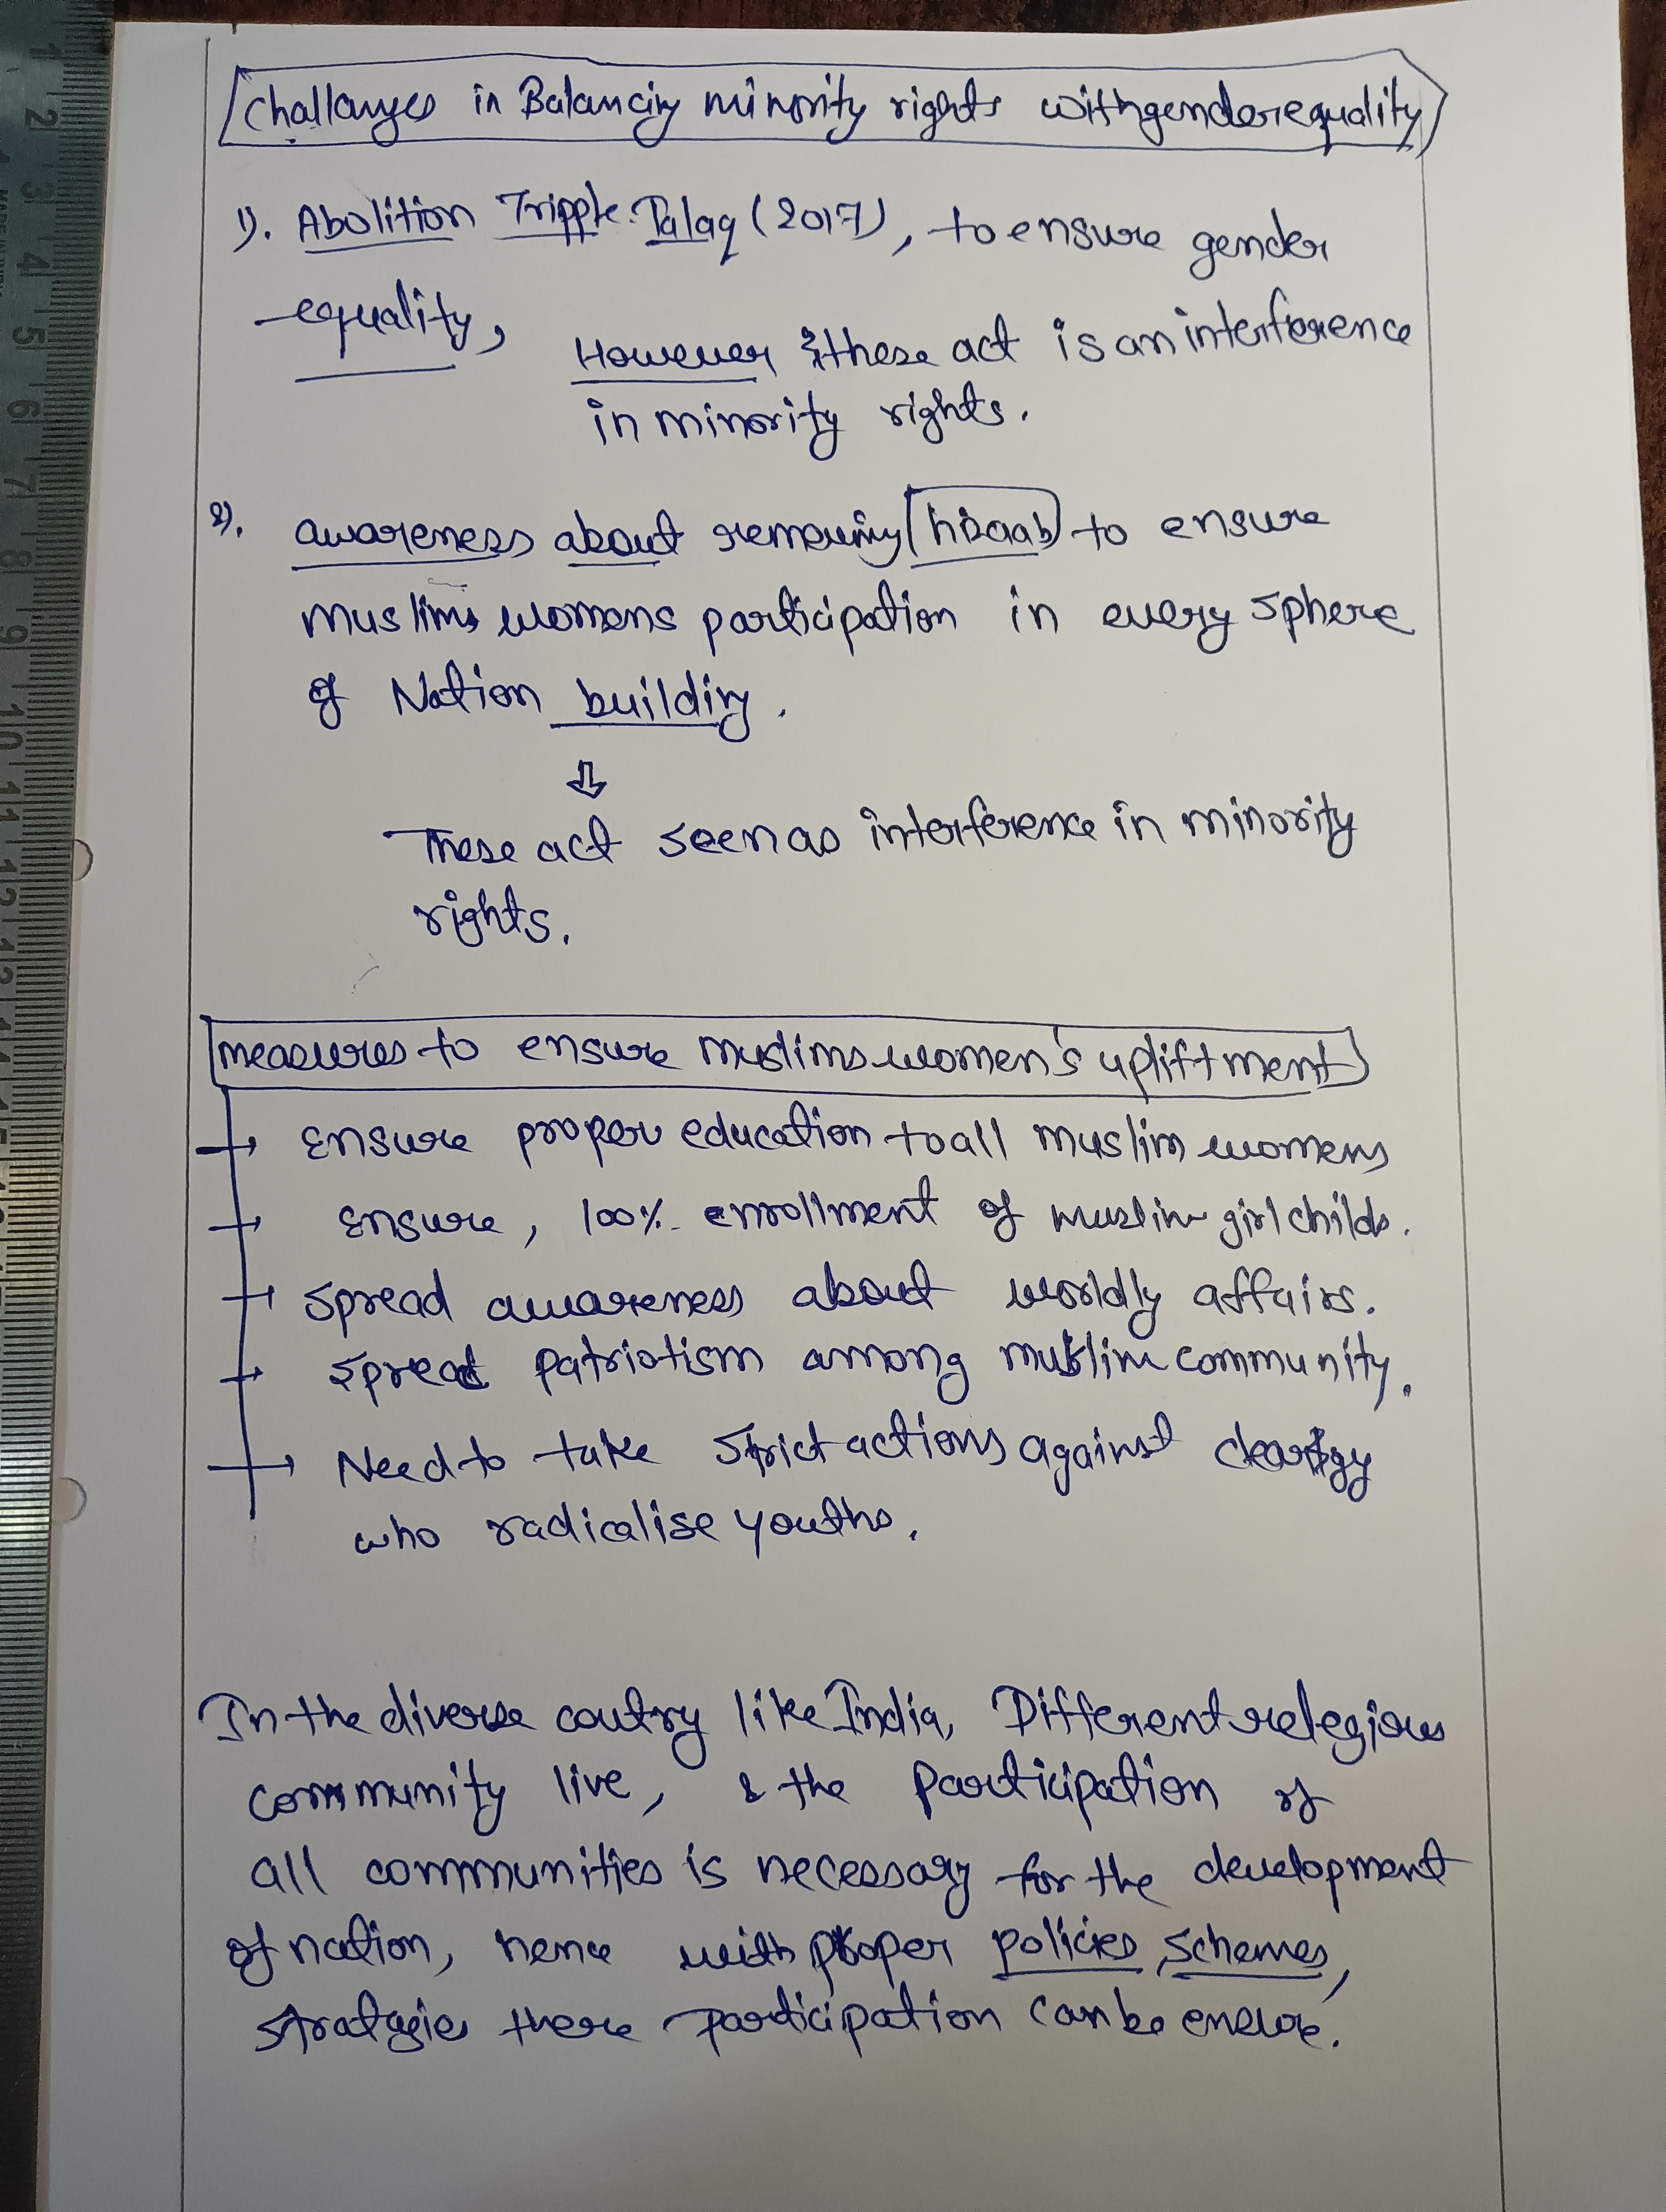 Challanges in Balancing minority rights withgenderequality
1). Abolition Tripple Talaq (2017), to ensure gender
equality,
However these act is an interference
in minority rights.
2). awareness about removing hizaab to ensure
muslims womens participation in every sphere
of Nation building.
⇩
These act seen as interference in minority
rights.
measures to ensure muslims women's upliftment
→ Ensure proper education to all muslim womens
→ Ensure, 100% enrollment of muslim girl childs.
→ spread awareness about worldly affairs.
→ spread patriotism among muslim community.
→ Need to take strict actions against
who radicalise youths.
In the diverse coutry like India, Different relegious
community live, & the participation of
all communities is necessary for the development
of nation, hence with proper policies, schemes,
there participation can be ensure.